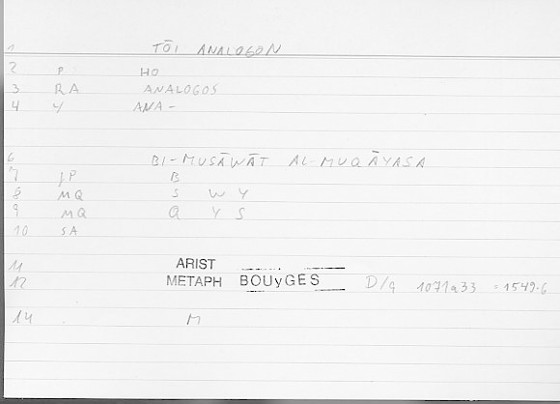 1 TŌI ANALOGON
2 P HO
3 RA ANALOGOS
4 Y ANA-
6 BI-MUSĀWĀT AL-MUQĀYASA
7 JP B
8 MQ S W Y
9 MQ Q Y S
10 SA
11 ARIST
12 METAPH BOUyGES D/q 1071a33 = 1549.6
14 M